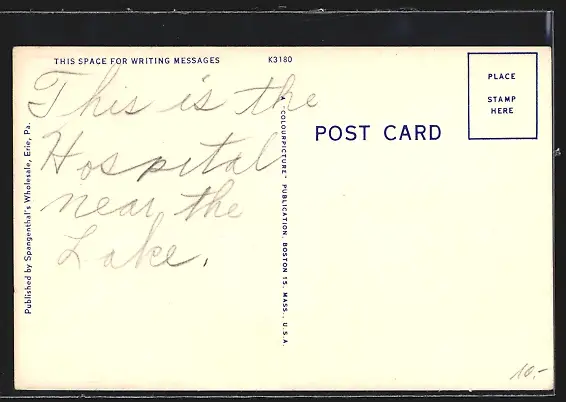 THIS SPACE FOR WRITING MESSAGES
K3180
This is the
Hospital
near the
Lake.
Published by Spangenthal's Wholesale, Erie, Pa.
A "COLOURPICTURE" PUBLICATION, BOSTON 15, MASS., U.S.A.
POST CARD
PLACE
STAMP
HERE
10.-